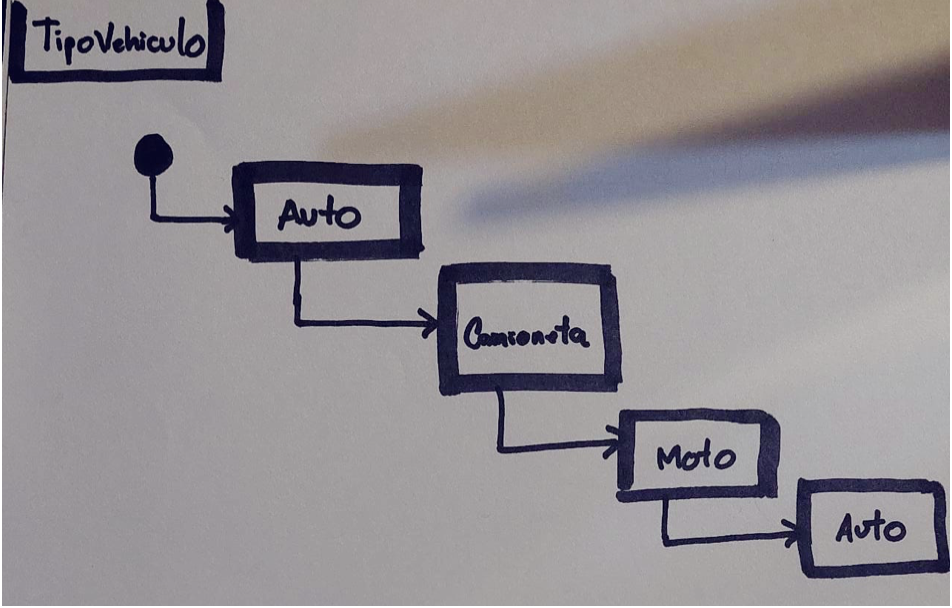 TipoVehiculo
Auto
Camioneta
Moto
Auto